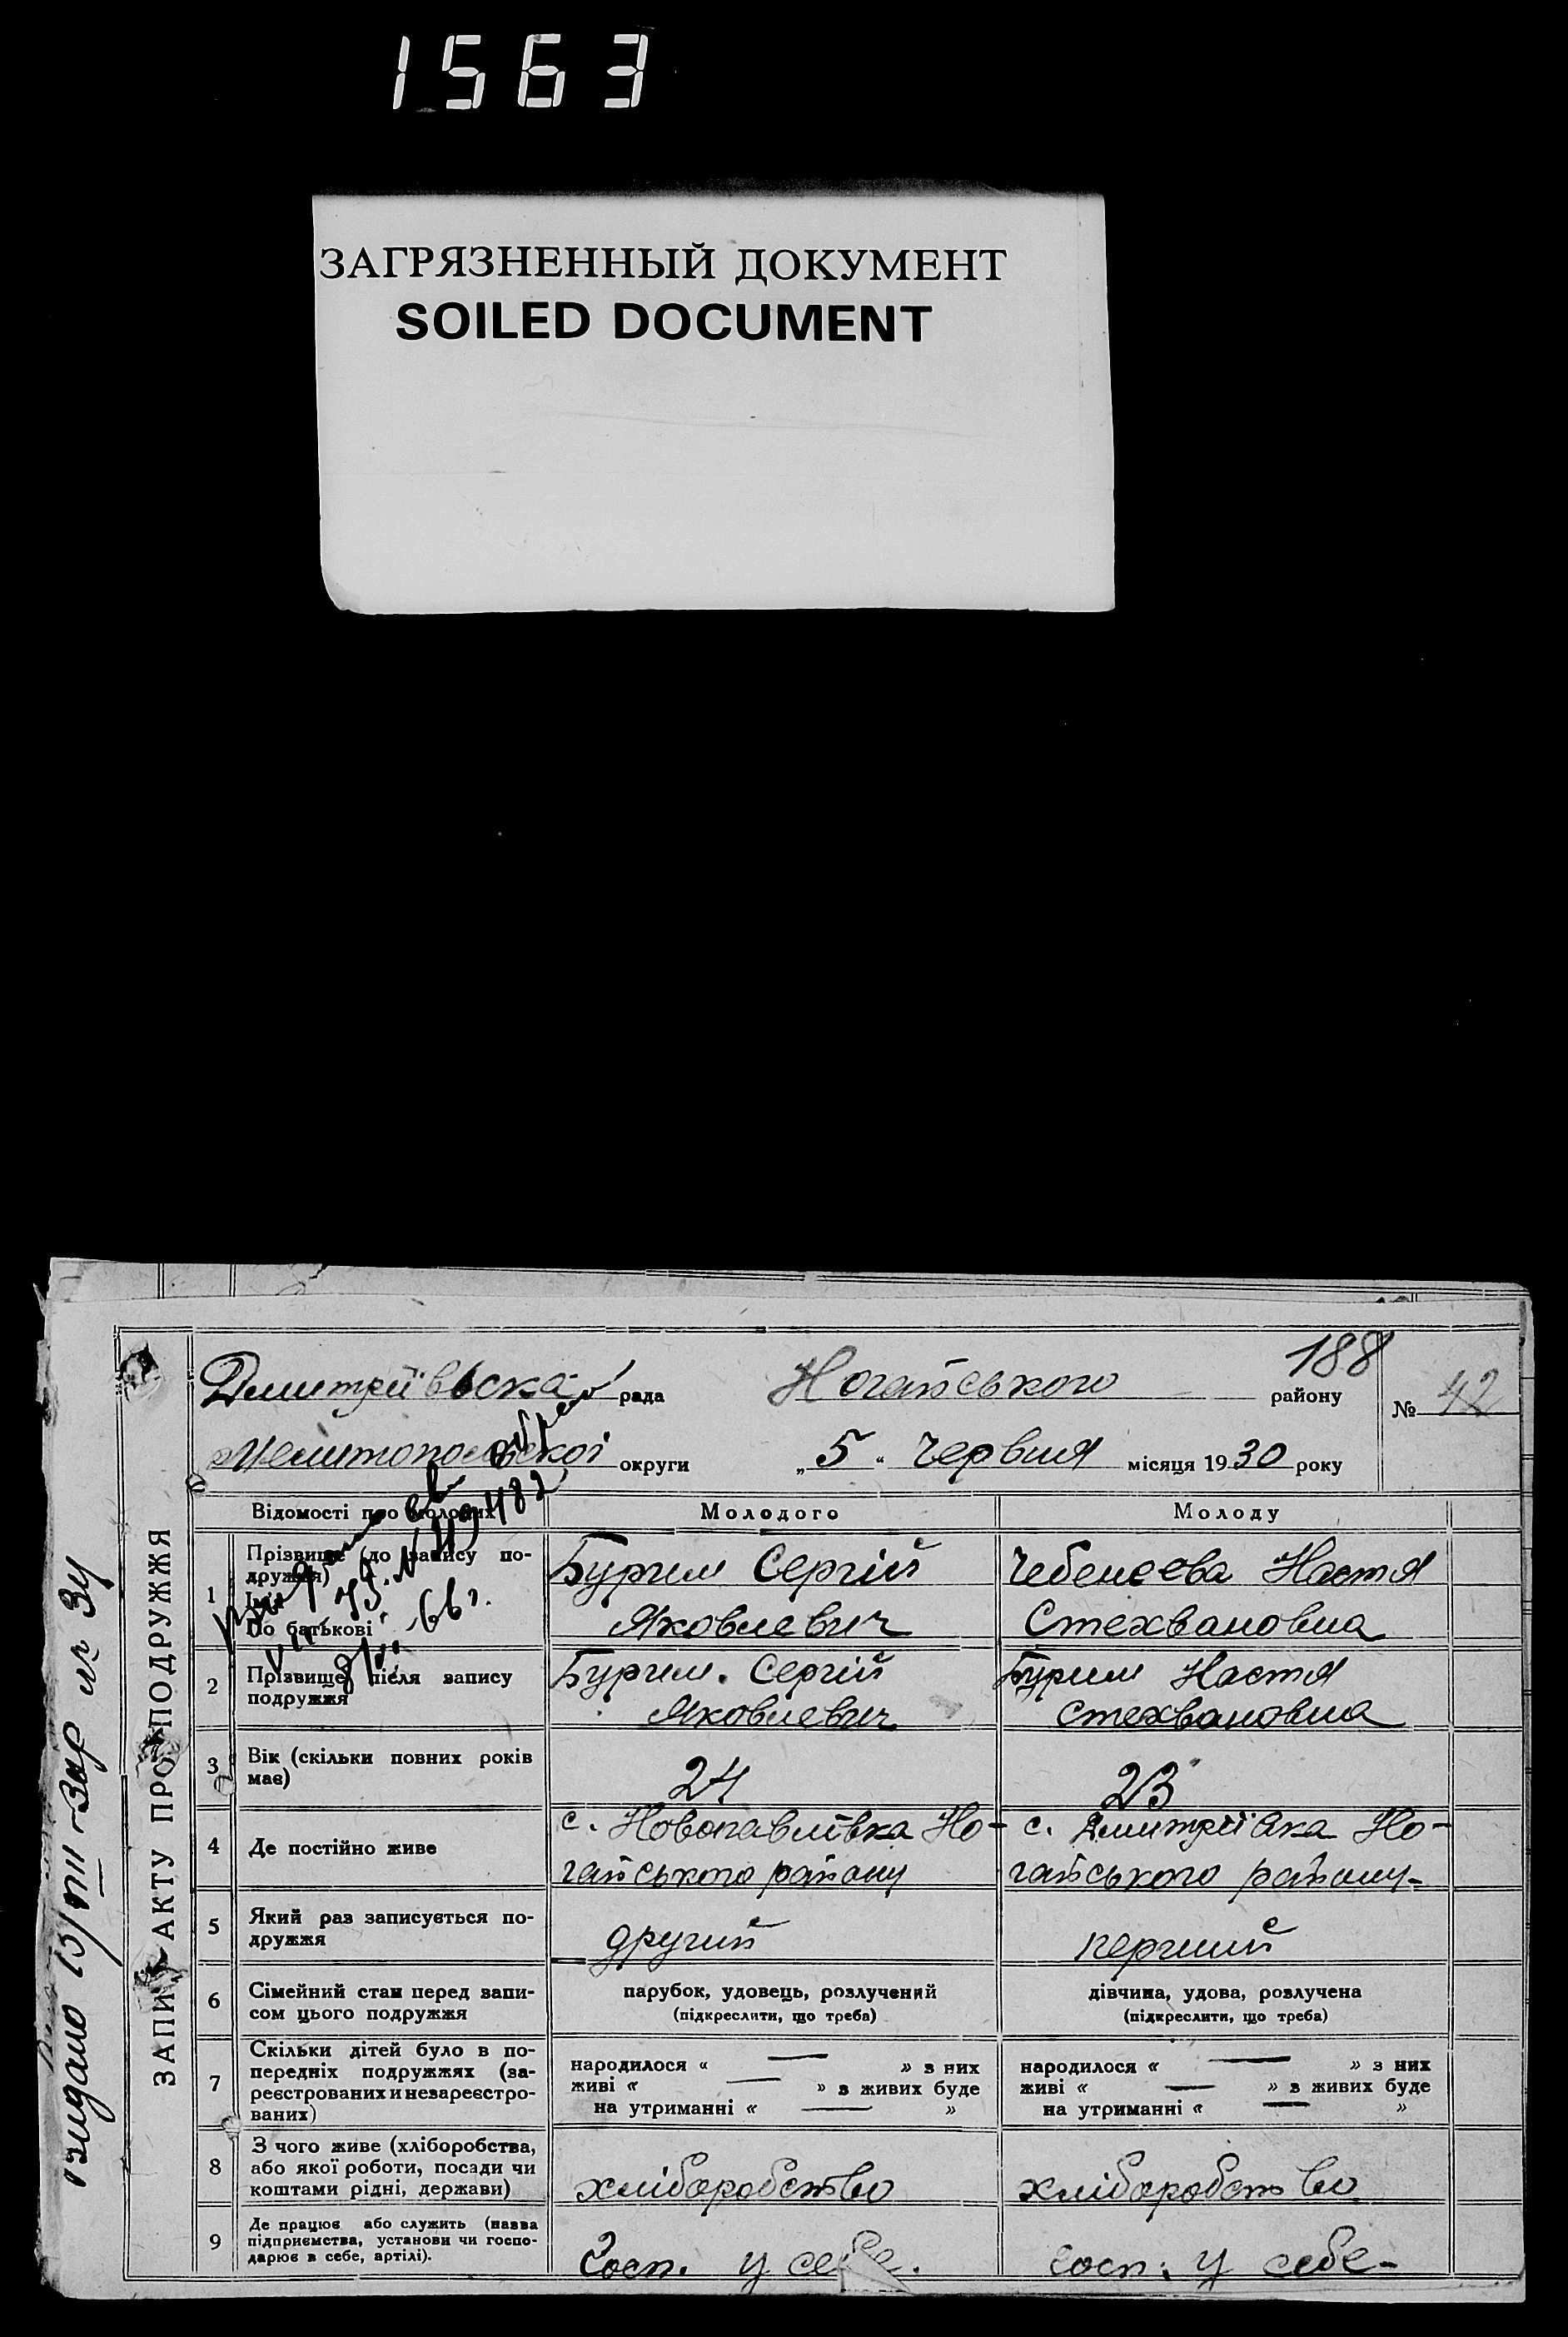 1563
ЗАГРЯЗНЕННЫЙ ДОКУМЕНТ
SOILED DOCUMENT
188
Дмитрїївьска рада Ногайського району № 42
Мелитопольскої округи „5" червня місяця 1930 року
ЗАПИС АКТУ ПРО ПОДРУЖЖЯ
Відомості про молодих Молодого Молоду
1 Прізвище (до запису по-
дружжя)
Ім'я
По батькові
Бурим Сергій
Яковлевич
Чебенеева Настя
Стехвановна
2 Прізвище після запису
подружжя
Бурим. Сергій
Яковлевич
Бурим Настя
Стехвановна
3 Вік (скільки повних років
має)
24
23
4 Де постійно живе
с. Новопавлівка Но-
гайського району
с. Дмитрїївка Но-
гайського району-
5 Який раз записується по-
дружжя
другий
перший
6 Сімейний стан перед запи-
сом цього подружжя
парубок, удовець, розлучений
(підкреслити, що треба)
дівчина, удова, розлучена
(підкреслити, що треба)
7 Скільки дітей було в по-
передніх подружжях (за-
реєстрованих и незареєстро-
ваних)
народилося « — » з них
живі « — » з живих буде
на утриманні « — »
народилося « — » з них
живі « — » з живих буде
на утриманні « — »
8 З чого живе (хліборобства,
або якої роботи, посади чи
коштами рідні, держави)
хліборобство
хліборобство
9 Де працює або служить (назва
підприємства, установи чи госпо-
дарює в себе, артілі).
Госп. у себе.
Госп. у себе-